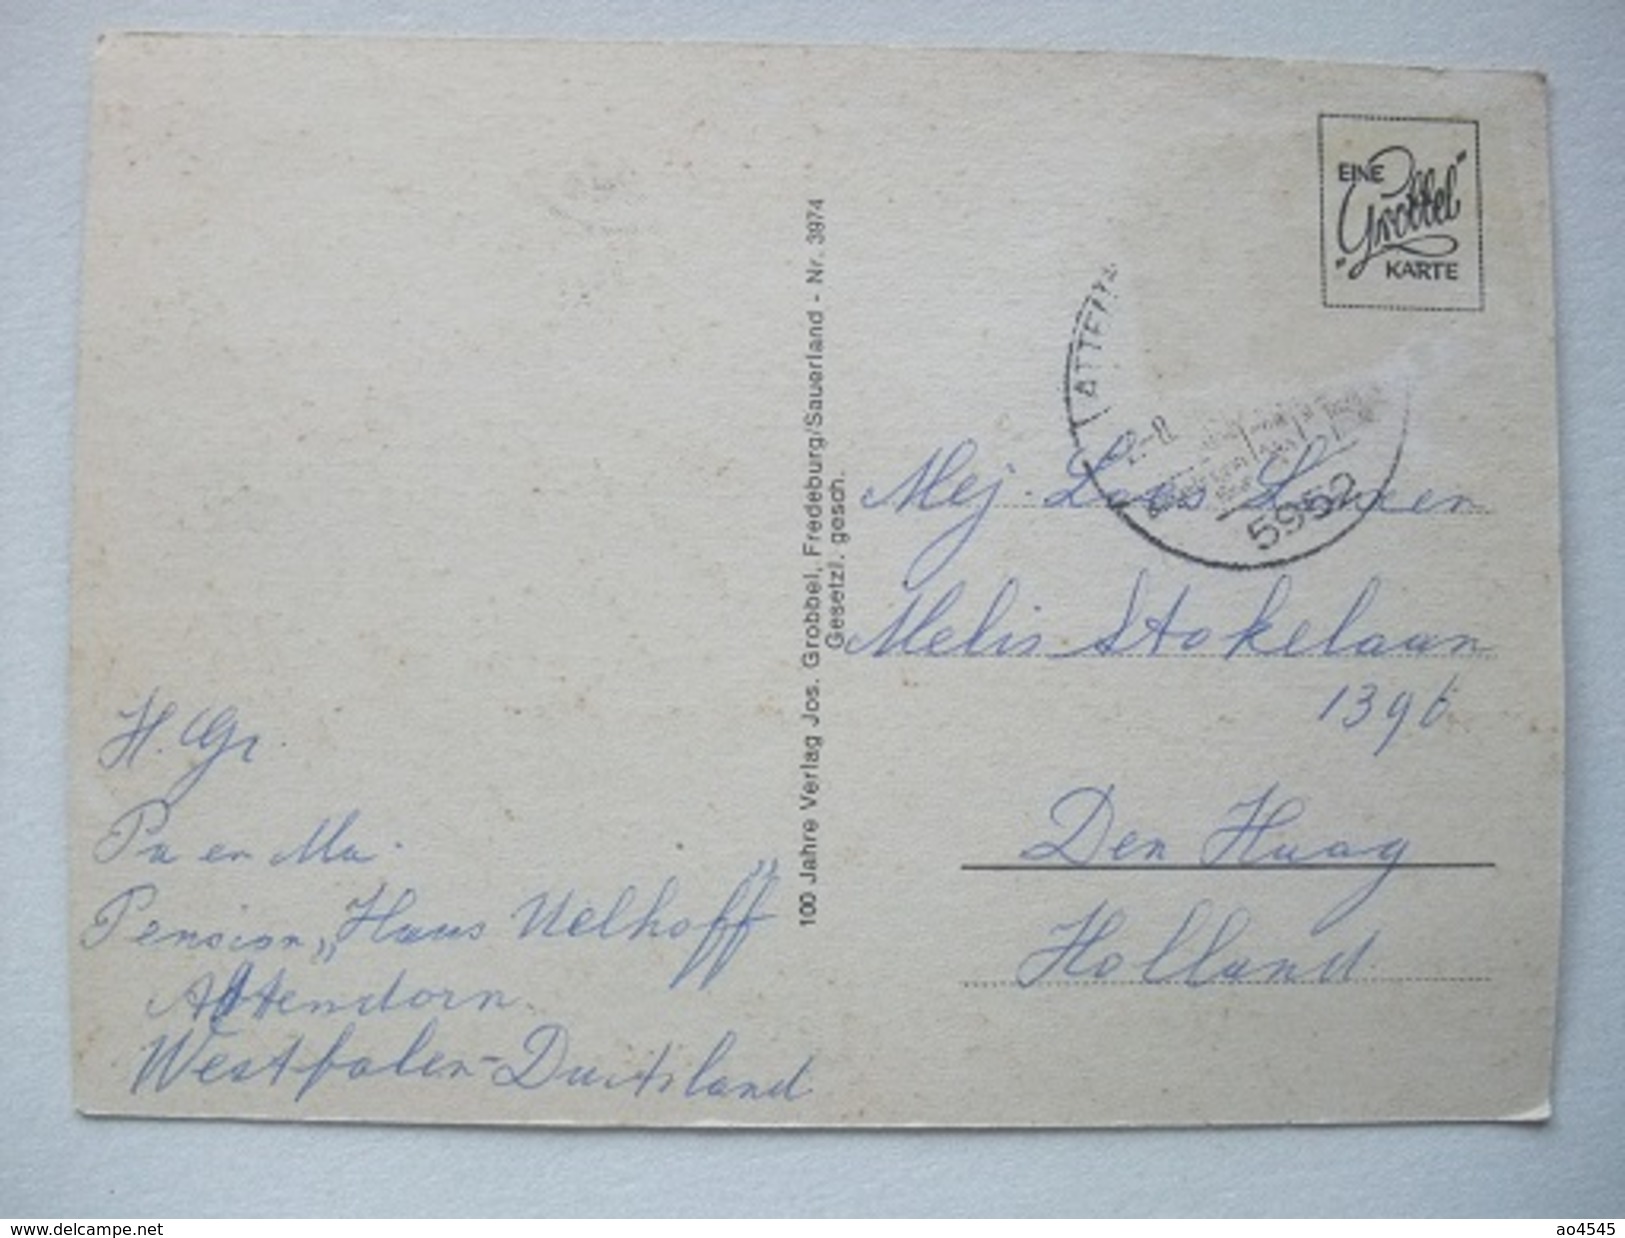 EINE
"Grobbel"
KARTE
5952
100 Jahre Verlag Jos. Grobbel, Fredeburg/Sauerland - Nr. 3974
Gesetzl. gesch.
Mej. Loos
Melis Stokelaan
1396
Den Haag
Holland
H. Gr.
Pa en Ma.
Pension „Haus Uelhoff"
Attendorn
Westfalen-Duitsland
www.delcampe.net
ao4545